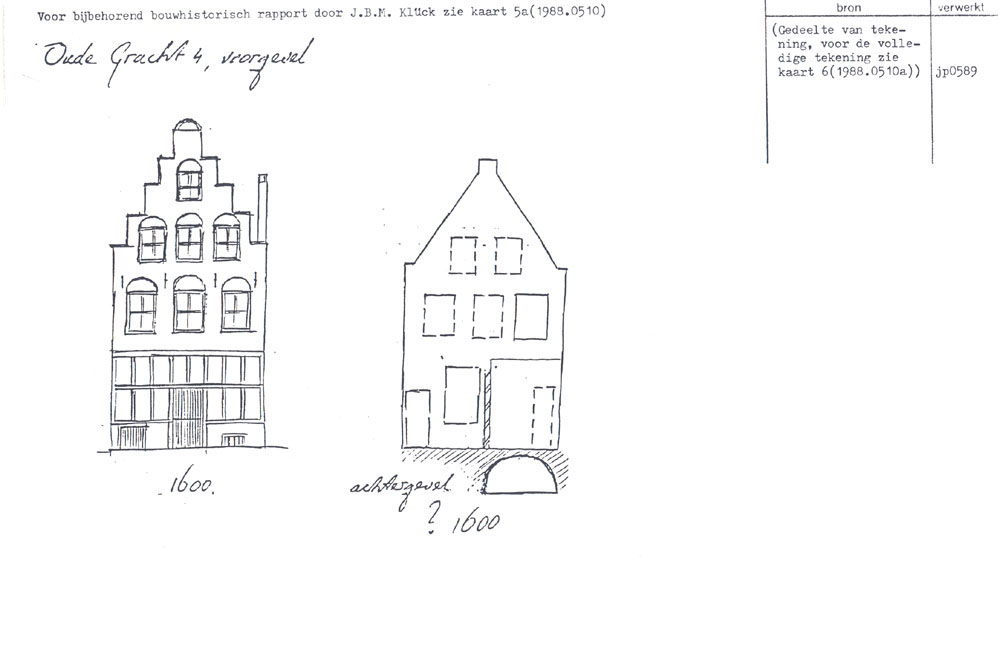 Voor bijbehorend bouwhistorisch rapport door J.B.M. Klück zie kaart 5a(1988.0510)
Oude Gracht 4, voorgevel
bron
verwerkt
(Gedeelte van teke-
ning, voor de volle-
dige tekening zie
kaart 6(1988.0510a))
jp0589
1600.
achtergevel
? 1600